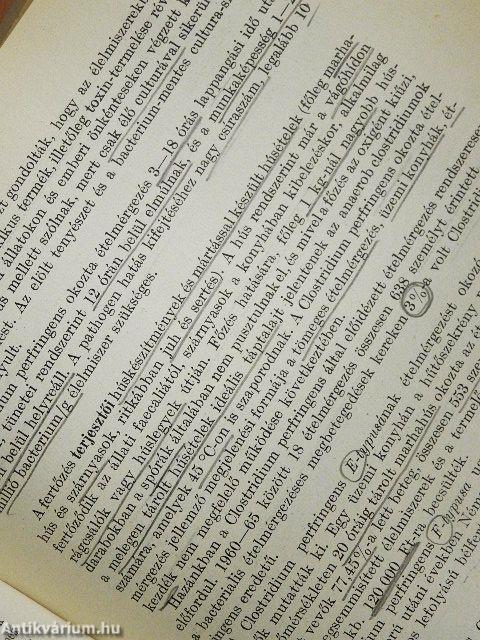 zt gondolták, hogy az élelmiszerekb
ikus termék, illetőleg toxin-termelése rév
állatokon és emberi önkénteseken végzett k
s mellett szólnak, mert csak élő culturával sikerü
est. Az elölt tenyészet és a bacterium-mentes cultura-sz
yult.
ium perfringens okozta ételmérgezés 3—18 órás lappangási idő ut
, tünetei rendszerint 12 órán belül elmúlnak, és a munkaképesség 1—
belül helyreáll. A pathogen hatás kifejtéséhez nagy csiraszám, legalább 10
llió bacterium/g élelmiszer szükséges.
A fertőzés terjesztői húskészítmények és mártással készült húsételek (főleg marha-
hús és szárnyasok, ritkábban juh és sertés). A hús rendszerint már a vágóhídon
fertőződik az állati faecaliától, szárnyasok a konyhában kibelezéskor, alkalmilag
rágcsálók vagy húslegyek útján. Főzés hatására, főleg 1 kg-nál nagyobb hús-
darabokban a spórák általában nem pusztulnak el, és mivel a főzés az oxigént kiűzi,
a melegen tárolt húsételek ideális táptalajt jelentenek az anaerob clostridiumok
számára, amelyek 45 °C-on is szaporodnak. A Clostridium perfringens okozta étel-
mérgezés jellemző megjelenési formája a tömeges ételmérgezés, üzemi konyhák, ét-
kezdék nem megfelelő működése következtében.
Hazánkban a Clostridium perfringens által előidézett ételmérgezés rendszeresen
előfordul. 1960—65 között 18 ételmérgezés összesen 688 személyt érintett
a bacterialis ételmérgezéses megbetegedések kereken 3%-a volt Clostridi
ingens eredetű.
Clostridium perfringens F-typusának ételmérgezést okozó
k mutatták ki. Egy üzemi konyhán a hűtőszekrény
mérsékleten 20 óráig tárolt marhahús okozta az ét
t vevők 77,45%-a lett beteg, összesen 553 sze
gsemmisített élelmiszerek és a termel
kb. 20 000 Ft-ra becsülték.
perfringens F-typusa
ú utáni években Ném
lefolyású helfen